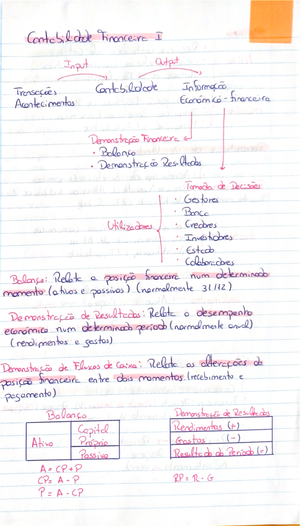 Contabilidade Financeira I
Input Output
Transações Contabilidade Informação
Acontecimentos Económico-financeira
Demonstração Financeira
• Balanço
• Demonstração Resultados
Tomada de Decisões
• Gestores
• Banco
Utilizadores • Credores
• Investidores
• Estado
• Colaboradores
Balanço: Relata a posição financeira num determinado
momento (ativos e passivos) (normalmente 31/12)
Demonstração de Resultados: Relata o desempenho
económico num determinado período (normalmente anual)
(rendimentos e gastos)
Demonstração de Fluxos de Caixa: Relata as alterações da
posição financeira entre dois momentos. (recebimento e
pagamento)
Balanço Demonstração de Resultados
Ativo Capital Próprio Passivo
Rendimentos (+)
Gastos (-)
Resultado do Período (=)
A = CP + P
CP = A - P RP = R - G
P = A - CP